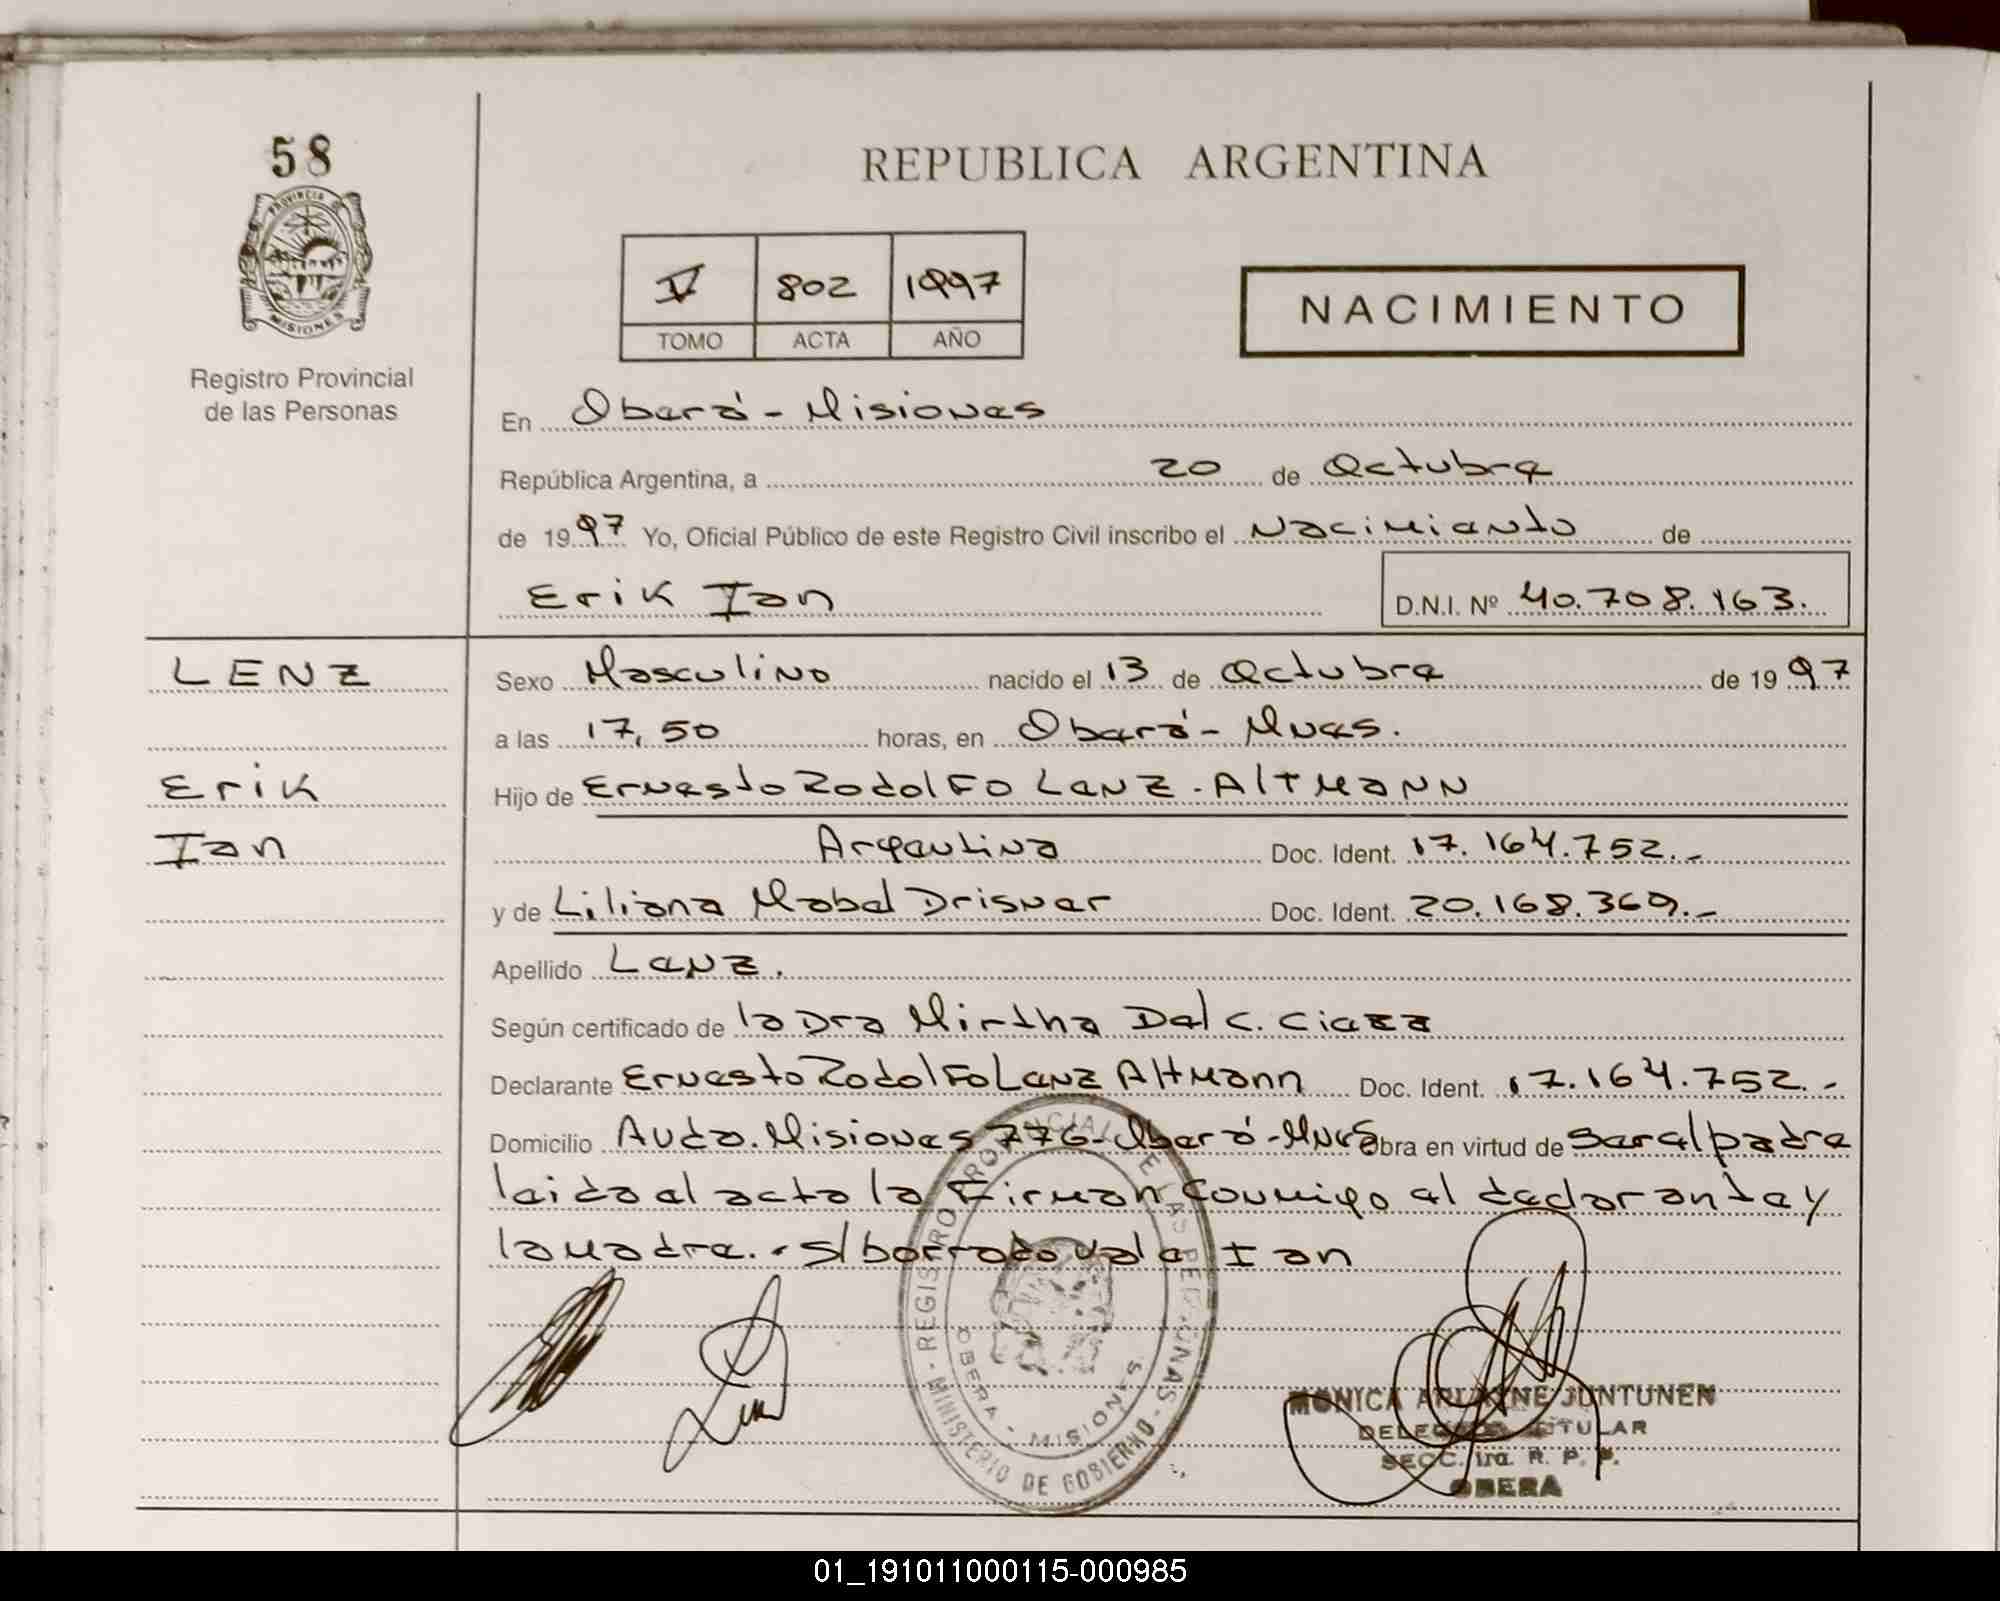 58
PROVINCIA DE
MISIONES
Registro Provincial
de las Personas
REPUBLICA ARGENTINA
V 802 1997
TOMO ACTA AÑO
NACIMIENTO
En Oberá - Misiones
República Argentina, a 20 de Octubre
de 1997 Yo, Oficial Público de este Registro Civil inscribo el Nacimiento de
Erik Ian D.N.I. Nº 40.708.163.
LENZ
Erik
Ian
Sexo Masculino nacido el 13 de Octubre de 1997
a las 17,50 horas, en Oberá - Mnes.
Hijo de Ernesto Rodolfo Lenz - Altmann
Argentina Doc. Ident. 17.164.752.-
y de Liliana Mabel Drisner Doc. Ident. 20.168.369.-
Apellido Lenz.
Según certificado de la Dra Mirtha Del C.
Declarante Ernesto Rodolfo Lenz Altmann Doc. Ident. 17.164.752.-
Domicilio Avda. Misiones 776 - Oberá - Mnes Obra en virtud de ser el padre
leida el acta la Firman conmigo el declarante y
la madre. - S/borrado vale Ian
REGISTRO PROVINCIAL DE LAS PERSONAS - MINISTERIO DE GOBIERNO -
OBERA - MISIONES
MONICA ARLAYNE JUNTUNEN
DELEGADA TITULAR
SECC. 1ra. R. P. P.
OBERA
01_191011000115-000985